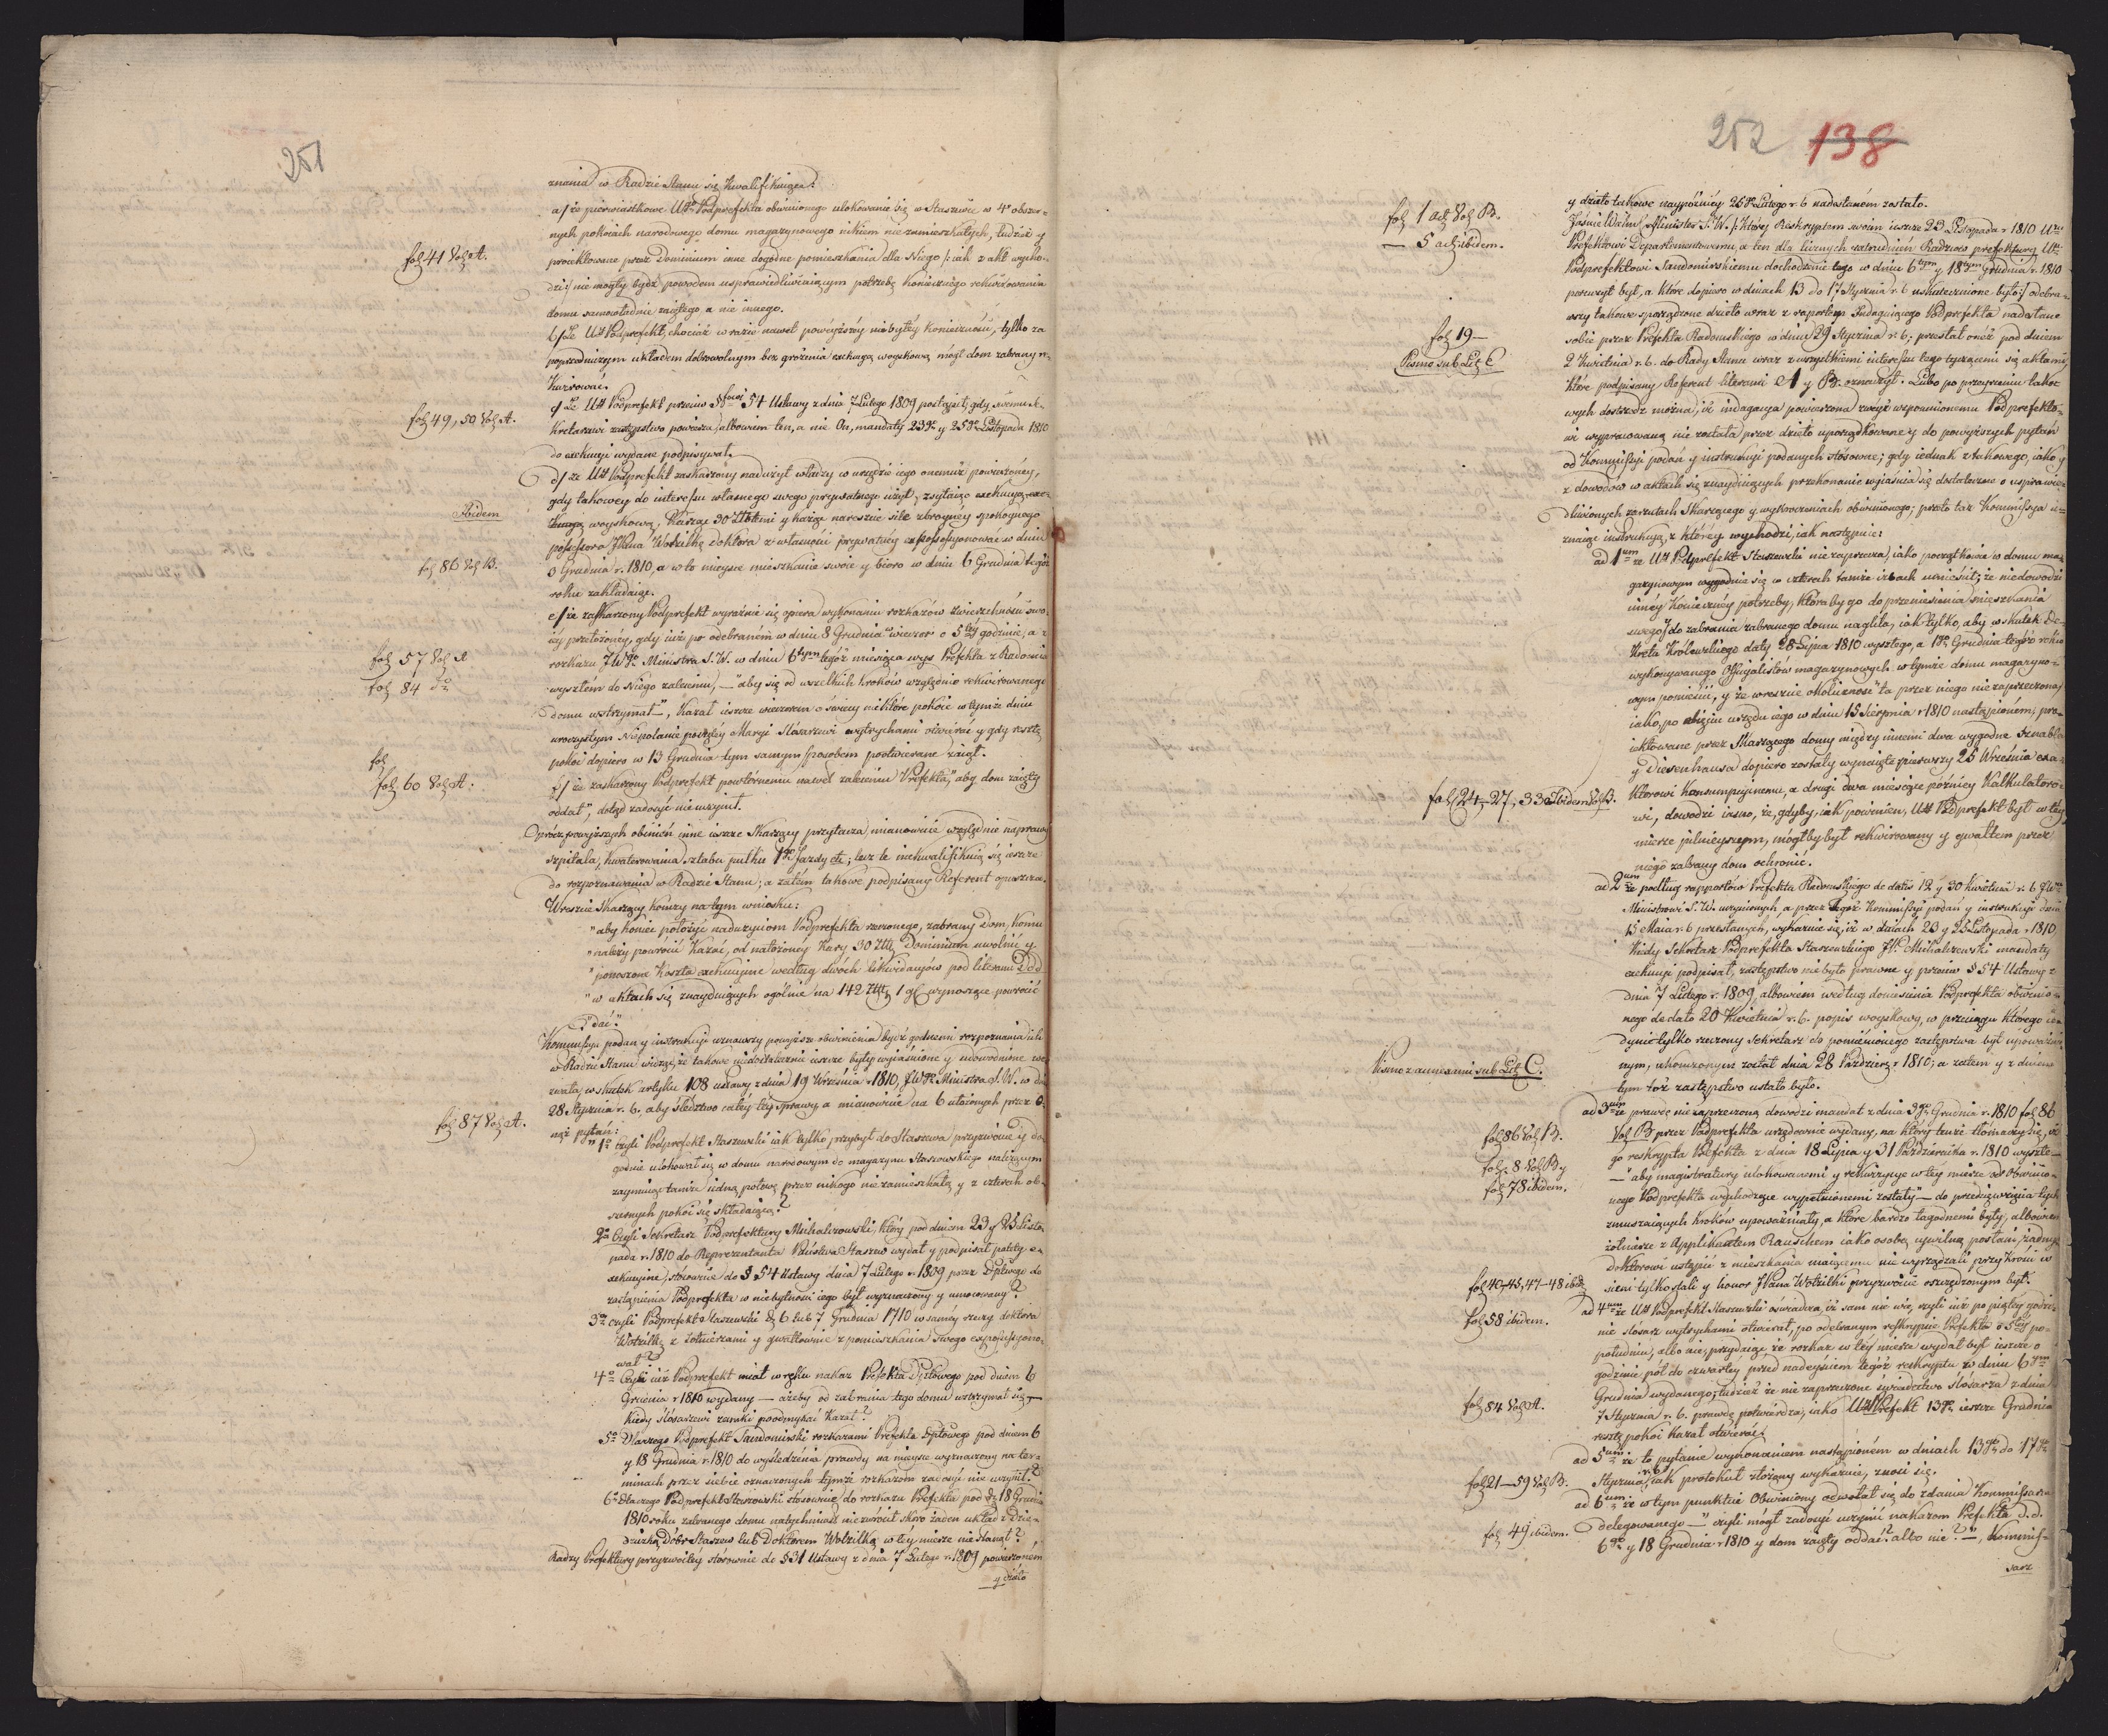 251
znania w Radzie Stanu się kwalifikuiące:
a/ że pierwiastkowe Ur. Podprefekta obwinionego ulokowanie się w Staszowie w 4ch obszer-
nych pokoiach narodowego domu magazynowego nikiem niezamieszkałych, tudzież y
fol. 41 Vol. A.
proiektowane przez Dominium inne dogodne pomieszkania dla Niego /: iak z akt wycho-
dzi :/ nie mogły bydź powodem usprawiedliwiaiącym potrzebę koniecznego rekwirowania
domu samowładnie zaiętego, a nie innego.
b/ Że Ur Podprefekt, chociaż w razie nawet powyższey niebyłey konieczności, tylko za
poprzedniczym układem dobrowolnym bez grożenia exekucyą woyskową mógł dom zabrany re-
kwirować.
c/ Że Ur Podprefekt przeciw § 54 Ustawy z dnia 7 Lutego 1809 postąpił, gdy swemu Se-
fol. 49, 50 Vol. A.
kretarzowi zastępstwo powierza, albowiem ten, a nie On, mandaty 23go y 25go Listopada 1810
do exekucyi wydane podpisywał.
d/ że Ur Podprefekt zaskarżony nadużył władzy w urzędzie iego onemuż powierzoney,
gdy takowey do interessu własnego swego prywatnego użył, zsyłaiąc exekucyą exe-
Ibidem
kucyą woyskową, każąc 30 Złotemi y każąc nareszcie sile zbroyney spokoynego
possessora JPana Wotzilkę doktora z własności prywatney expossessyonować w dniu
fol. 86 Vol. B.
3 Grudnia r. 1810, a w to mieysce mieszkanie swoie y bióro w dniu 6 Grudnia tegoż
roku zakładaiąc.
e/ że zaskarżony Podprefekt wyraźnie się opiera wykonaniu rozkazów zwierzchności swo-
iey przełożoney, gdy iuż po odebraném w dniu 8 Grudnia wieczor o 5tey godzinie, a z
fol. 57 Vol. A
rozkazu JWgo Ministra S. W. w dniu 6tym tegoż miesiąca przez Prefekta z Radomia
fol. 84 do
wyszłém do Niego zaleceniu, — "aby się od wszelkich kroków względnie rekwirowanego
domu wstrzymał —", kazał ieszcze wieczorem o świecy niektóre pokoie w tymże dniu
uroczystym Niepokalanie poczętey Maryi Ślósarzowi wytrychami otwierać y gdy resztę
fol.
pokoi dopiero w 13 Grudnia tym samym sposobem pootwierane zaiął.
fol. 60 Vol. A.
f/ że zaskarżony Podprefekt powtórnemu nawet zaleceniu Prefekta, "aby dom zaięty
oddał", dotąd zadosyć nieuczynił.
Oprócz powyższych obwinień inne ieszcze Skarżący przytacza, mianowicie względnie naprawy
szpitala, kwaterowania sztabu pułku 1go Jazdy etc; lecz te niekwalifikuią się ieszcze
do rozpoznawania w Radzie Stanu; a zatém takowe podpisany Referent opuszcza.
Wreszcie Skarżący kończy na tym wniosku:
"aby koniec położyć nadużyciom Podprefekta rzeczonego, zabrany Dom, komu
"należy powrócić kazać, od nałożoney kary 30 Złł. Dominium uwolnić y
"ponoszone koszta exekucyine według dwóch likwidacyów pod literami D dd
"w aktach się znayduiących ogólnie na 142 Złł. 1 gl wynoszące powrócić
"dać."
Kommissya podań y instrukcyi uznawszy powyższe obwinienia bydź godnemi rozpoznania iuż
w Radzie Stanu widząc, że takowe niedostatecznie ieszcze były wyiaśnione y udowodnione we-
zwała, w skutek artykłu 108 ustawy z dnia 19 Września 1810, JWgo Ministra S. W. w dniu
28 Stycznia r. b. aby śledztwo całey tey sprawy a mianowicie na 6 ułożonych przez O-
fol. 87 Vol. A.
neż pytań:
"1o Czyli Podprefekt Staszowski iak tylko przybył do Staszowa przyzwoicie y do-
godnie ulokował się w domu narodowym do magazynu Staszowskiego należącym
zaymuiąc tamże iedną połowę przez nikogo niezamieszkałą y z czterech ob-
szernych pokoi się składaiącą?
2o Czyli Sekretarz Podprefektury Michalczowski, który pod dniem 23 y 25 Listo-
pada r. 1810 do Reprezentanta Państwa Staszów wydał y podpisał palety e-
xekucyine, stósownie do § 54 Ustawy dnia 7 Lutego r. 1809 przez Dptwego do
zastąpienia Podprefekta w niebytności iego był wyznaczony y umocowany?
3o czyli Podprefekt Staszowski d. 6 lub 7 Grudnia 1710 w samey rzeczy doktora
Wotzilkę z żołnierzami y gwałtownie z pomieszkania swego expossessyono-
wał?
4o Czyli iuż Podprefekt miał w ręku nakaz Prefekta Dptowego pod dniem 6
Grudnia r 1810 wydany — ażeby od zabrania tego domu wstrzymał się, —
kiedy ślósarzowi zamki poodmykać kazał?
5o Dlaczego Podprefekt Sandomirski rozkazami Prefekta Dptowego pod dniem 6
y 18 Grudnia r. 1810 do wyśledzenia prawdy na mieysce wyznaczony na ter-
minach przez siebie oznaczonych tymże rozkazom zadosyć nie uczynił?
6o Dlaczego Podprefekt Staszowski stósownie do rozkazu Prefekta pod d. 18 Grudnia
1810 roku zabranego domu natychmiast nie zwrócił skoro żaden układ z Dzie-
dziczką Dóbr Staszów lub Doktorem Wotzilką w tey mierze nie stanął?
Radzy Prefektury przyzwoitey stósownie do § 31 Ustawy z dnia 7 Lutego r. 1809 powierzoném
y dzieło
252 138
y dzieło takowe naypóźniey 25go Lutego r. b nadesłaném zostało.
fol. 1 act. Vol. B.
Jaśnie Wielm. Minister S. W. /: który Reskryptem swoim ieszcze 23 Listopada r 1810 Ur
— 5 act. ibidem.
Prefektowi Departamentowemu, a ten dla licznych zatrudnień Radzców prefektury Ur
Podprefektowi Sandomirskiemu dochodzenie tego w dniu 6tym y 18tym Grudnia r. 1810
poruczył był, a które dopiero w dniach 13 do 17 Stycznia r. b uskutecznione było :/ odebra-
wszy takowe sporządzone dzieło wraz z raportem Indaguiącego Podprefekta nadesłane
fol. 19 —
sobie przez Prefekta Radomskiego w dniu 29 Stycznia r. b, przesłał oneż pod dniem
Pismo sub Lit. C
2 Kwietnia r. b. do Rady Stanu wraz z wszystkiemi interessu tego tyczącemi się aktami,
które podpisany Referent literami A y B. oznaczył. Lubo po przeyrzeniu tako-
wych dostrzedz można, iż indagacya powierzona zwyż wspomnionemu Podprefekto-
wi wypracowaną nie została przez dzieło uporządkowane y do powyższych pytań
od Kommissyi podań y instrukcyi podanych stósowne; gdy iednak z takowego, iako y
z dowodów w aktach się znayduiących przekonanie wyiaśnia się dostateczne o usprawie-
dliwionych zarzutach Skarżącego y wykroczeniach obwinionego; przeto taż Kommissya u-
znaie instrukcyą, z którey wychodzi, iak następuie:
ad 1um że Ur Podprefekt Staszowski nie zaprzecza, iako początkowie w domu ma-
gazynowym wygodnie się w czterech tamże izbach umieścił; że niedowodzi
inney konieczney potrzeby, któraby go do przeniesienia mieszkania
swego y do zabrania zabranego domu nagliła, iak tylko, aby w skutek De-
kretu Królewskiego daty 28 Lipca 1810 wyszłego, a 1go Grudnia tegoż roku
wykonywanego Officyalistów magazynowych w tymże domu magazyno-
wym pomieścić, y że wreszcie okoliczność ta przez niego niezaprzeczona,
iako po obięciu urzędu iego w dniu 15 Sierpnia r 1810 nastąpioném, pro-
iektowane przez Skarżącego domy między innemi dwa wygodne Sznabla
fol. 24, 27, 33 Ibidem Vol. B.
y Diesenhausa dopiero zostały wynaięte pierwszy 25 Września exa-
ktorowi konsumpcyinemu, a drugi dwa miesiące późniey Kalkulatoro-
wi, dowodzi iasno, że, gdyby, iak powinien, Ur Podprefekt był w tey
mierze pilnieyszym, mógłby był rekwirowany y gwałtem przez
niego zabrany dom ochronić.
ad 2um że podług rapportów Prefekta Radomskiego de datis 12 y 30 Kwietnia r. b JW
Ministrowi S. W. uczynionych, a przez tegoż Kommissyi podań y instrukcyi dnia
15 Maia r. b przesłanych, wykazuie się, iż w dniach 23 y 25 Listopada r 1810
kiedy Sekretarz Podprefekta Staszowskiego JP. Michalczewski mandaty
exekucyi podpisał, zastępstwo nie było prawne y przeciw § 54 Ustawy z
dnia 7 Lutego r. 1809, albowiem według doniesienia Podprefekta obwinio-
nego de dato 20 Kwietnia r. b. popis woyskowy, w przeciągu którego ie-
dynie tylko rzeczony Sekretarz do pomienionego zastępstwa był upoważnio-
Pismo z aneksami sub Lit. C.
nym, ukończonym został dnia 28 Paździer. r 1810; a zatem y z dniem
tym też zastępstwo ustało było.
ad 3um że prawdę niezaprzeczoną dowodzi mandat z dnia 3go Grudnia r. 1810 fol. 86
fol. 86 Vol. B.
Vol. B przez Podprefekta urzędownie wydany, na który tenże tłómaczy się, iż
fol. 8 Vol. B y
go reskrypta Prefekta z dnia 18 Lipca y 31 Października r. 1810 wyszłe —
fol. 78 ibidem.
— "aby magistratury ulokowanemi y rekwizycye w tey mierze od obwinio-
nego Podprefekta wychodzące wypełnionemi zostały" — do przedsięwzięcia tych
zmuszaiących kroków upoważniały, a które bardzo łagodnemi były, albowiem
żołnierze z Applikantem Rauschem iako osobą cywilną posłani, żadney
doktorowi ustąpić z mieszkania maiącemu nie wyrządzali przykrości w
fol. 40, 45, 47—48 ibid.
sieni tylko stali y honor JPana Wotzilki przyzwoicie oszczędzonym był.
fol. 58 ibidem.
ad 4um że Ur Podprefekt Staszowski oświadcza, iż sam nie wie, czyli iuż po piątey godzi-
nie ślósarz wytrychami otwierał, po odebranym reskrypcie Prefekta o 5tey po-
południu, albo nie, przydaiąc że rozkaz w tey mierze wydał był ieszcze o
godzinie pół do czwartey przed nadeyściem tegoż reskryptu w dniu 6tym
Grudnia wydanego; tudzież że nie zaprzeczone świadectwo ślósarza z dnia
fol. 84 Vol. A.
7 Stycznia r. b. prawdę potwierdza, iako Ur Prefekt 13go ieszcze Grudnia
resztę pokoi kazał otwierać.
ad 5um że to pytanie wykonaniem nastąpioném w dniach 13go do 17go
fol. 21—59 Vol. B.
Stycznia r. b, iak protokuł złożony wykazuie, znosi się.
ad 6um że w tym punktcie Obwiniony odwołał się do zdania Kommissarza
fol. 49 ibidem.
delegowanego — "czyli mógł zadosyć uczynić nakazom Prefekta d. d.
6go y 18 Grudnia r 1810 y dom zaięty oddać? albo nie? —", Kommis-
sarz